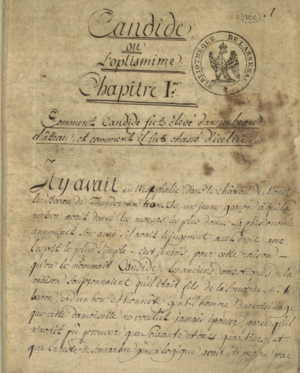 Candide
ou
L'optimisme
Chapitre 1er
Comment Candide fut élevé dans un beau
château, et comment il fut chassé d'icelui
Il y avait en Westphalie, dans le château de
le Baron de Thunder ten tronckh un jeune garçon à qui la
nature avait donné les moeurs les plus douces. Sa phisionomie
annonçait son ame. il avait le jugement assez droit avec
l'esprit le plus simple. c'est je crois pour cette raison
qu'on le nommait Candide. les anciens domestiques de la
maison soupçonnaient qu'il était fils de la soeur de
baron, et d'un bon et honnête gentilhomme du voisinage
que cette demoiselle ne voulut jamais épouser parce qu'il
n'avait pu prouver que soixante et onze quartiers, et
que le reste de son arbre généalogique avait été
BIBLIOTHEQUE DE L'ARSENAL